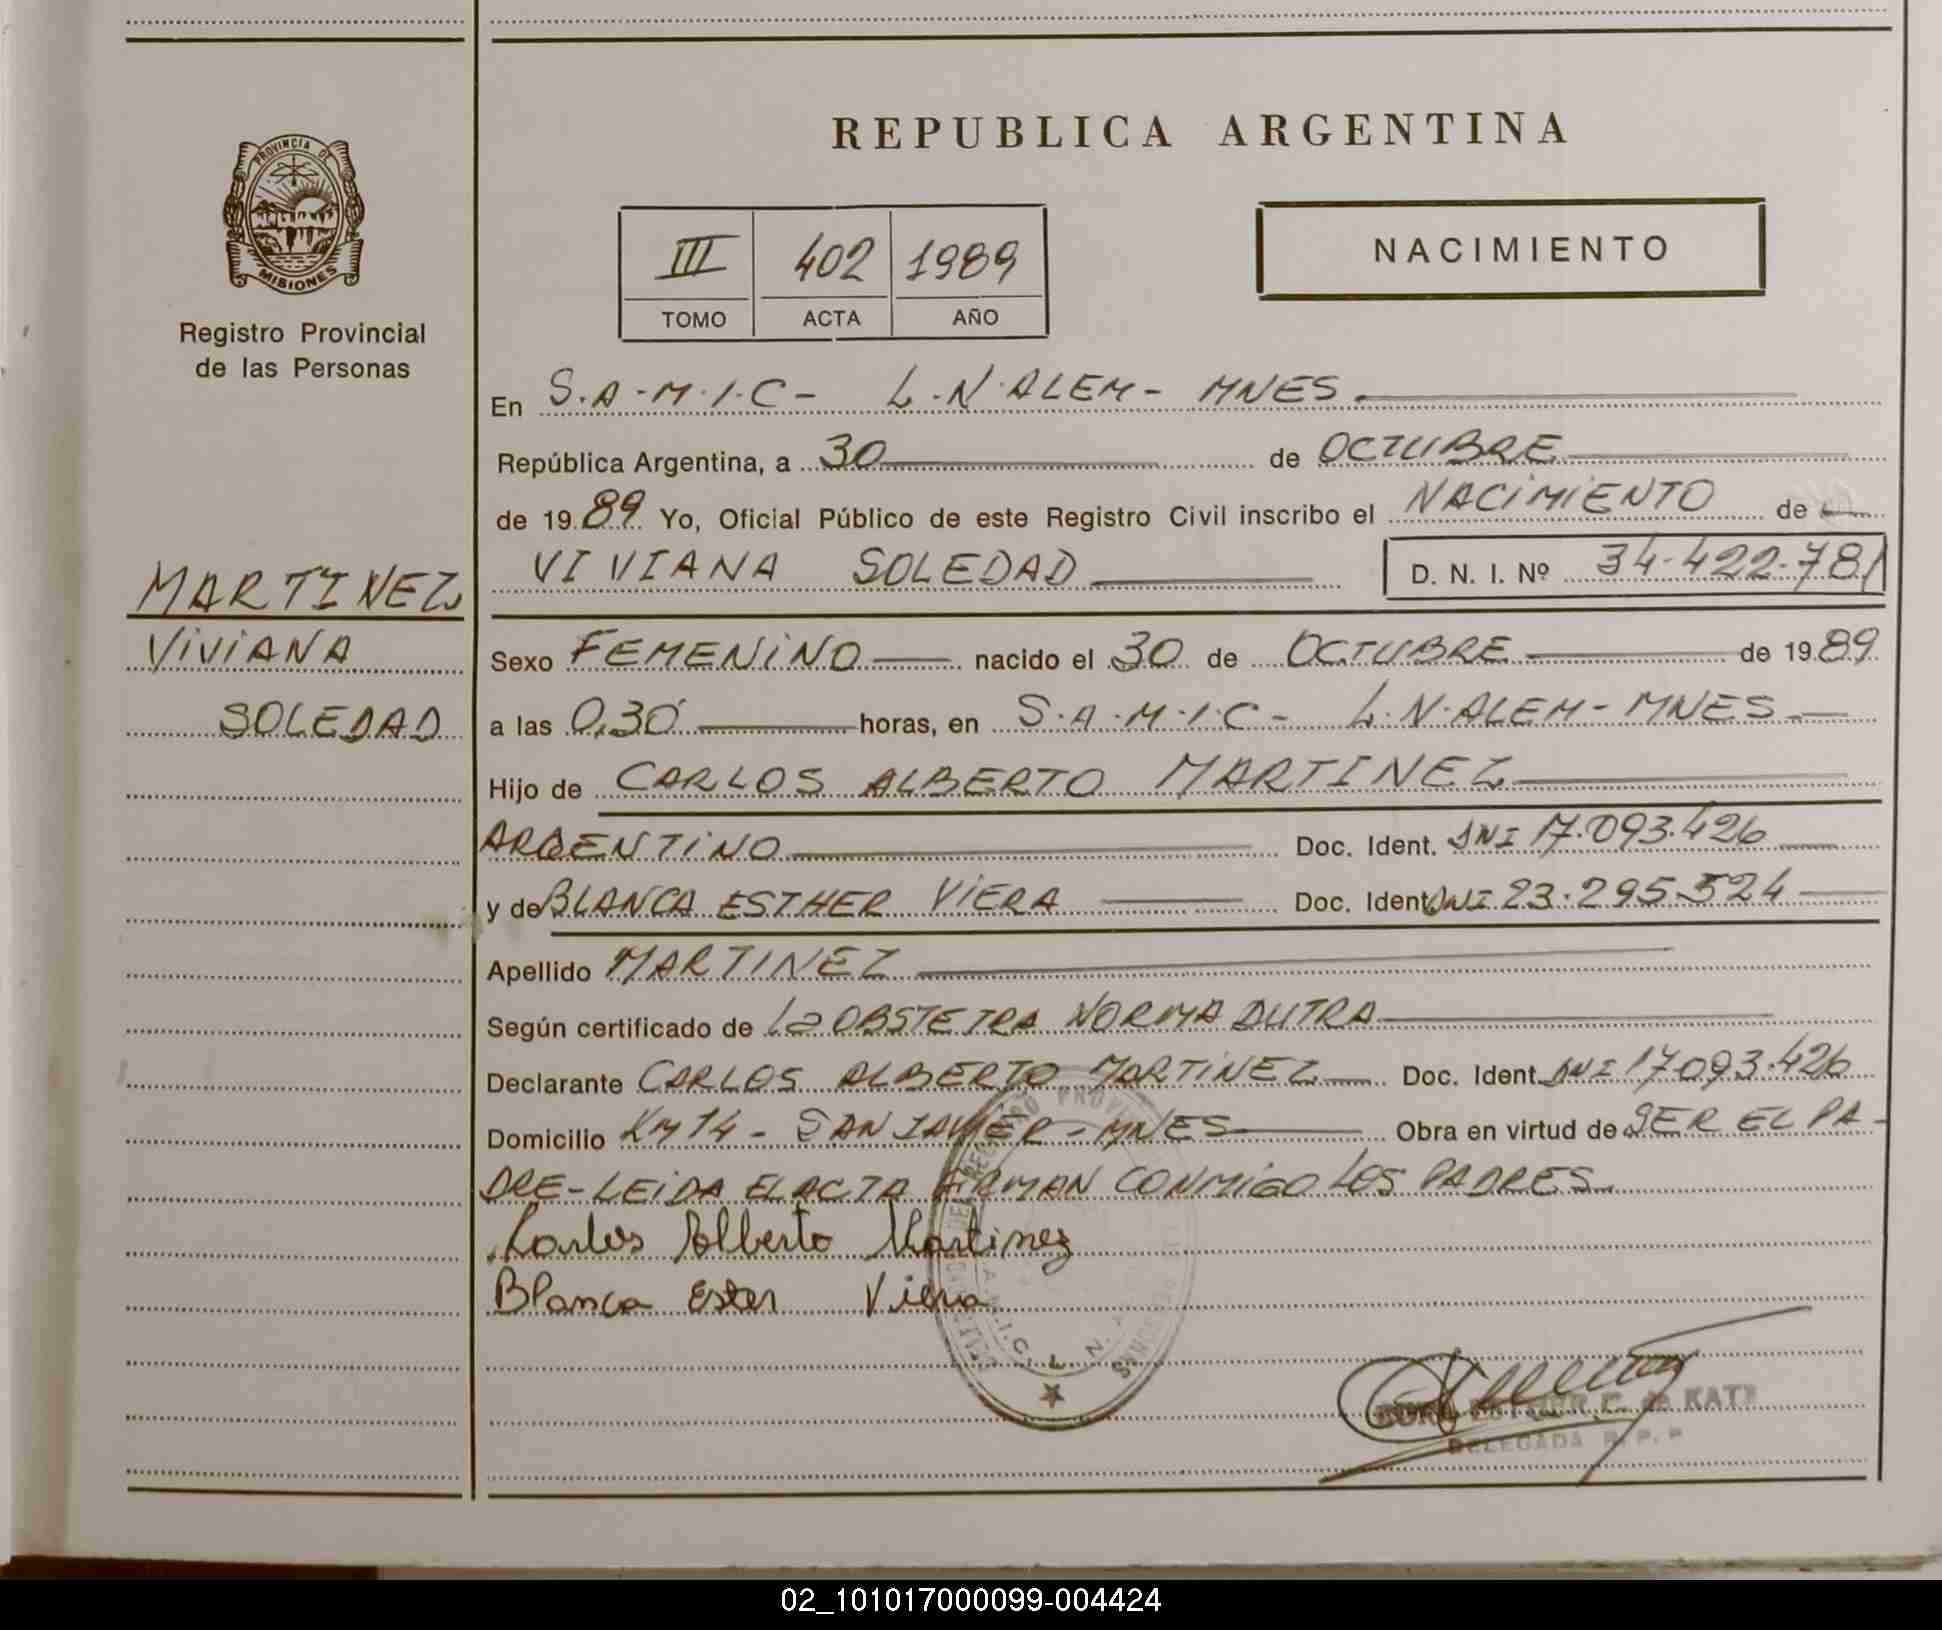 REPUBLICA ARGENTINA
PROVINCIA DE
MISIONES
Registro Provincial
de las Personas
III 402 1989
TOMO ACTA AÑO
NACIMIENTO
En S.A.M.I.C- L.N.ALEM- MNES.
República Argentina, a 30 de OCTUBRE
de 1989 Yo, Oficial Público de este Registro Civil inscribo el NACIMIENTO de
VIVIANA SOLEDAD D. N. I. Nº 34.422.781
MARTINEZ
VIVIANA
SOLEDAD
Sexo FEMENINO nacido el 30 de OCTUBRE de 1989
a las 0,30 horas, en S.A.M.I.C- L.N.ALEM- MNES
Hijo de CARLOS ALBERTO MARTINEZ
ARGENTINO Doc. Ident. DNI 17.093.426
y de BLANCA ESTHER VIERA Doc. Ident. DNI 23.295.524
Apellido MARTINEZ
Según certificado de la OBSTETRA NORMA DUTRA
Declarante CARLOS ALBERTO MARTINEZ Doc. Ident. DNI 17.093.426
Domicilio KM 14 - SAN JAVIER - MNES Obra en virtud de SER EL PA-
DRE-LEIDA EL ACTA FIRMAN CONMIGO LOS PADRES.
Karlos Alberto Martinez
Blanca Ester Viera
DELEGADA R. P. P
02_101017000099-004424